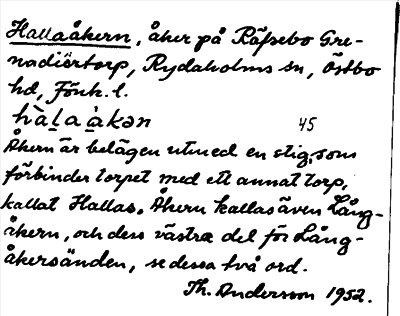 Hallaåkern, åker på Räfsebo Gre-
nadiärtorp, Rydaholms sn, Östbo
hd, Jönk. l.
hàl̲a ̲àkən 45
Åkern är belägen utmed en stig, som
förbinder torpet med ett annat torp,
kallat Hallas. Åkern kallas även Lång-
åkern, och dess västra del för Lång-
åkersänden, se dessa två ord.
Th. Andersson 1952.